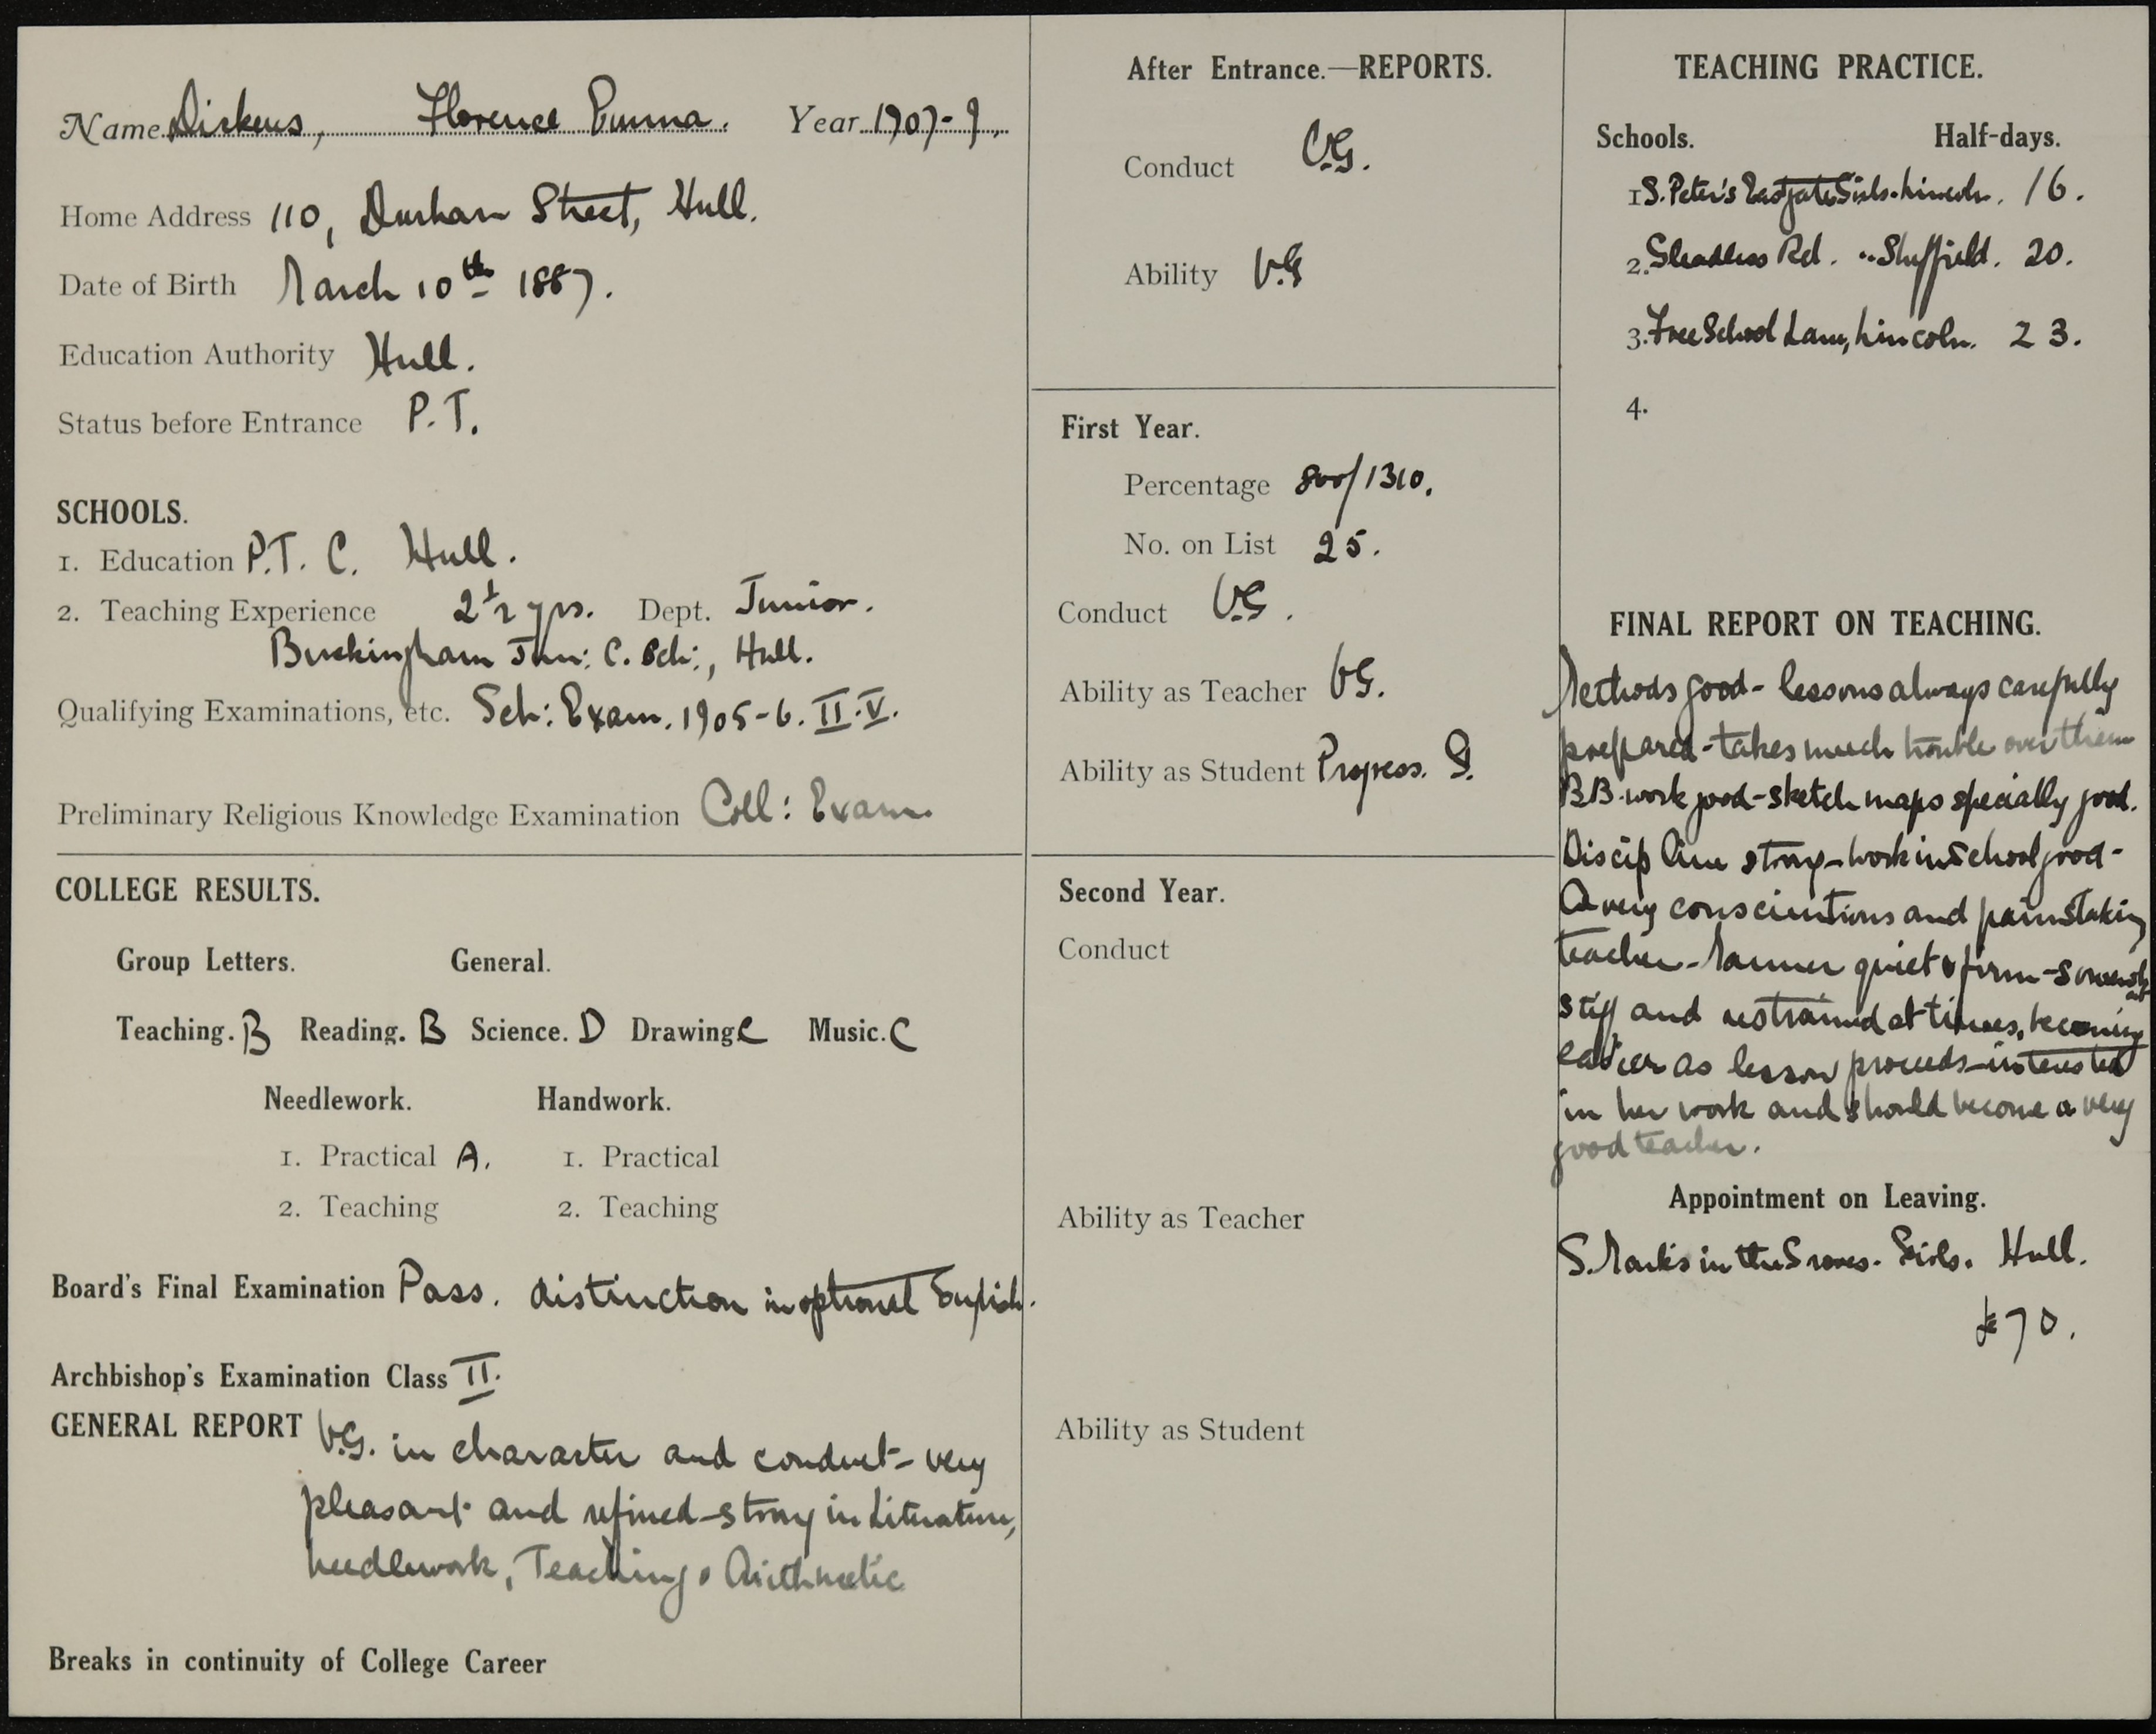 Name Dickens, Florence Emma. Year 1907-9.
Home Address 110, Durham Street, Hull.
Date of Birth March 10th 1887.
Education Authority Hull.
Status before Entrance P.T.
SCHOOLS.
1. Education P.T. C. Hull.
2. Teaching Experience 2½ yrs. Dept. Junior.
Buckingham Jun: C. Sch:, Hull.
Qualifying Examinations, etc. Sch: Exam. 1905-6. II.V.
Preliminary Religious Knowledge Examination Coll: Exam.
COLLEGE RESULTS.
Group Letters. General.
Teaching. B Reading. B Science. D Drawing C Music. C
Needlework. Handwork.
1. Practical A. 1. Practical
2. Teaching 2. Teaching
Board's Final Examination Pass. distinction in optional English.
Archbishop's Examination Class II.
GENERAL REPORT V.G. in character and conduct - very
pleasant and refined - strong in Literature,
needlework, Teaching & Arithmetic
Breaks in continuity of College Career
After Entrance.—REPORTS.
Conduct V.G.
Ability V.G
First Year.
Percentage 800/1310.
No. on List 25.
Conduct V.G.
Ability as Teacher V.G.
Ability as Student Progress. G.
Second Year.
Conduct
Ability as Teacher
Ability as Student
TEACHING PRACTICE.
Schools. Half-days.
1 S. Peter's Eastgate Girls. Lincoln. 16.
2. Gleadless Rd. " Sheffield. 20.
3. Free School Lane, Lincoln. 23.
4.
FINAL REPORT ON TEACHING.
Methods good - lessons always carefully
prepared - takes much trouble over them
BB. work good - sketch maps specially good.
Discipline strong - work in School good -
A very conscientious and painstaking
teacher - Manner quiet & firm - somewhat
stiff and restrained at times, becoming
easier as lesson proceeds - interested
in her work and should become a very
good teacher.
Appointment on Leaving.
S. Mark's in the Groves. Girls. Hull.
£70.